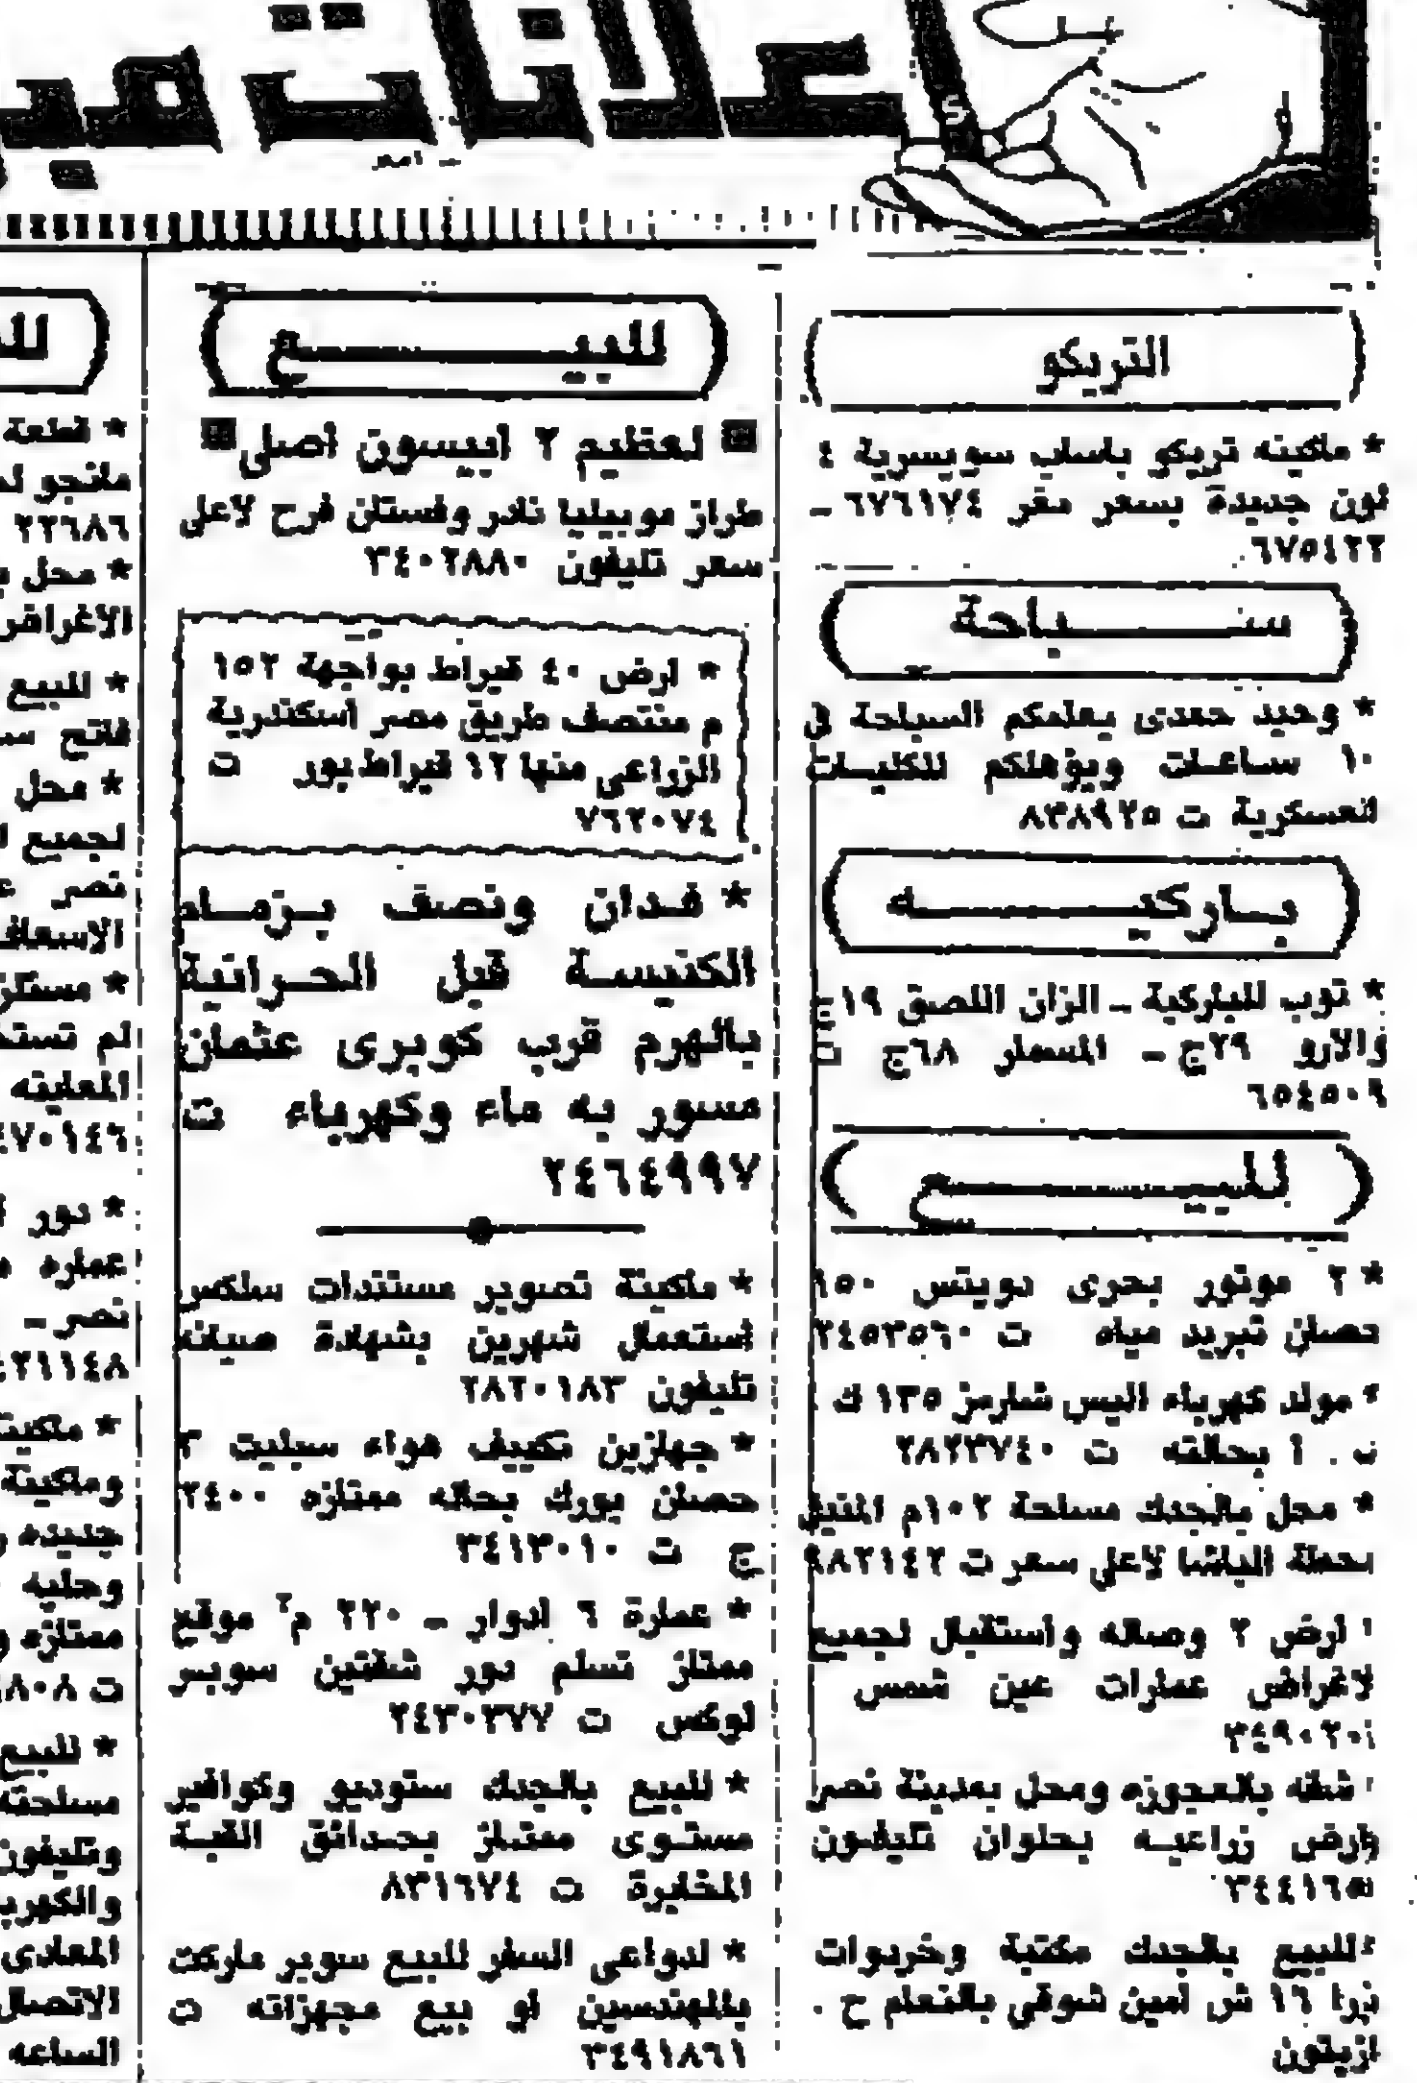 اعلانات مبو
التريكو
* ماكينه تريكو باساب سويسرية ٤
لون جديدة بسعر مغر ٦٧٦١٧٤ -
٦٧٥٤٢٢
سـبـاحة
* وحيد حمدى يعلمكم السباحة فى
١٠ ساعات ويؤهلكم للكليات
العسكرية ت ٨٣٨٩٢٥
بـاركيـه
* توب للباركية - الزان اللصق ١٩ج
والارو ٢٩ج - المسمار ٦٨ج ت
٦٥٤٥٠٩
للبيـع
* ٢ موتور بحرى دويتس ١٥٠
حصان تبريد مياه ت ٢٤٥٣٥٦٠
* مولد كهرباء اليس شارمز ١٣٥ ك
ب . أ بحالته ت ٢٨٢٣٧٤٠
* محل بالجدك مساحة ١٠٢م المنيل
محطة الباشا لاعلى سعر ت ٩٨٢١٤٢
ارض ٢ وصاله واستقبال لجميع
لاغراض عمارات عين شمس
٣٤٩٠٢٠
شقه بالعجوزه ومحل بمدينة نصر
وارض زراعيه بحلوان تليفون
٣٤٤١٦٥
للبيع بالجدك مكتبة وخردوات
١٦ ش امين شوقى بالنعام ح .
ازيتون
للبيـع
لعظيم ٢ ابيسون اصلى
طراز موبيليا نادر وفستان فرح لاعلى
سعر تليفون ٣٤٠٢٨٨٠
* ارض ٤٠ قيراط بواجهة ١٥٢
م منتصف طريق مصر اسكندرية
الزراعى منها ١٢ قيراط بور ت
٧٦٢٠٧٤
* فدان ونصف بـزمـام
الكنيسـة قبل الحـرانية
بالهرم قرب كوبرى عثمان
مسور به ماء وكهرباء ت
٢٤٦٤٩٩٧
* ماكينة تصوير مستندات سلكس
استعمال شهرين بشهادة صيانه
تليفون ٢٨٢٠١٨٣
* جهازين تكييف هواء سبليت ٣
حصان يورك بحاله ممتازه ٢٤٠٠
ج ت ٣٤١٣٠١٠
* عمارة ٦ ادوار - ٢٢٠ م٢ موقع
ممتاز تسلم دور شقتين سوبر
لوكس ت ٢٤٣٠٣٧٧
* للبيع بالجدك ستوديو وكوافير
مستوى ممتاز بحدائق القبة
المخابرة ت ٨٣١٦٧٤
* لدواعى السفر للبيع سوبر ماركت
بالمهندسين او بيع مجهزاته ت
٣٤٩١٨٦١
* قطعة
مانجو
٢٢٦٨٦
* محل
الاغراض
* للبيع
فاتح
* محل
لجميع
نصر
الاسعاف
*
لم
المعاينه
٤٧٠١٤٦
* دور
عماره
نصر -
٤٢١١٤٨
* ماكينة
وماكينة
جديده
وحليه
ممتازه
ت ٨٠٨
* للبيع
مساحته
وتليفون
والكهرب
المعادى
الاتصال
الساعه